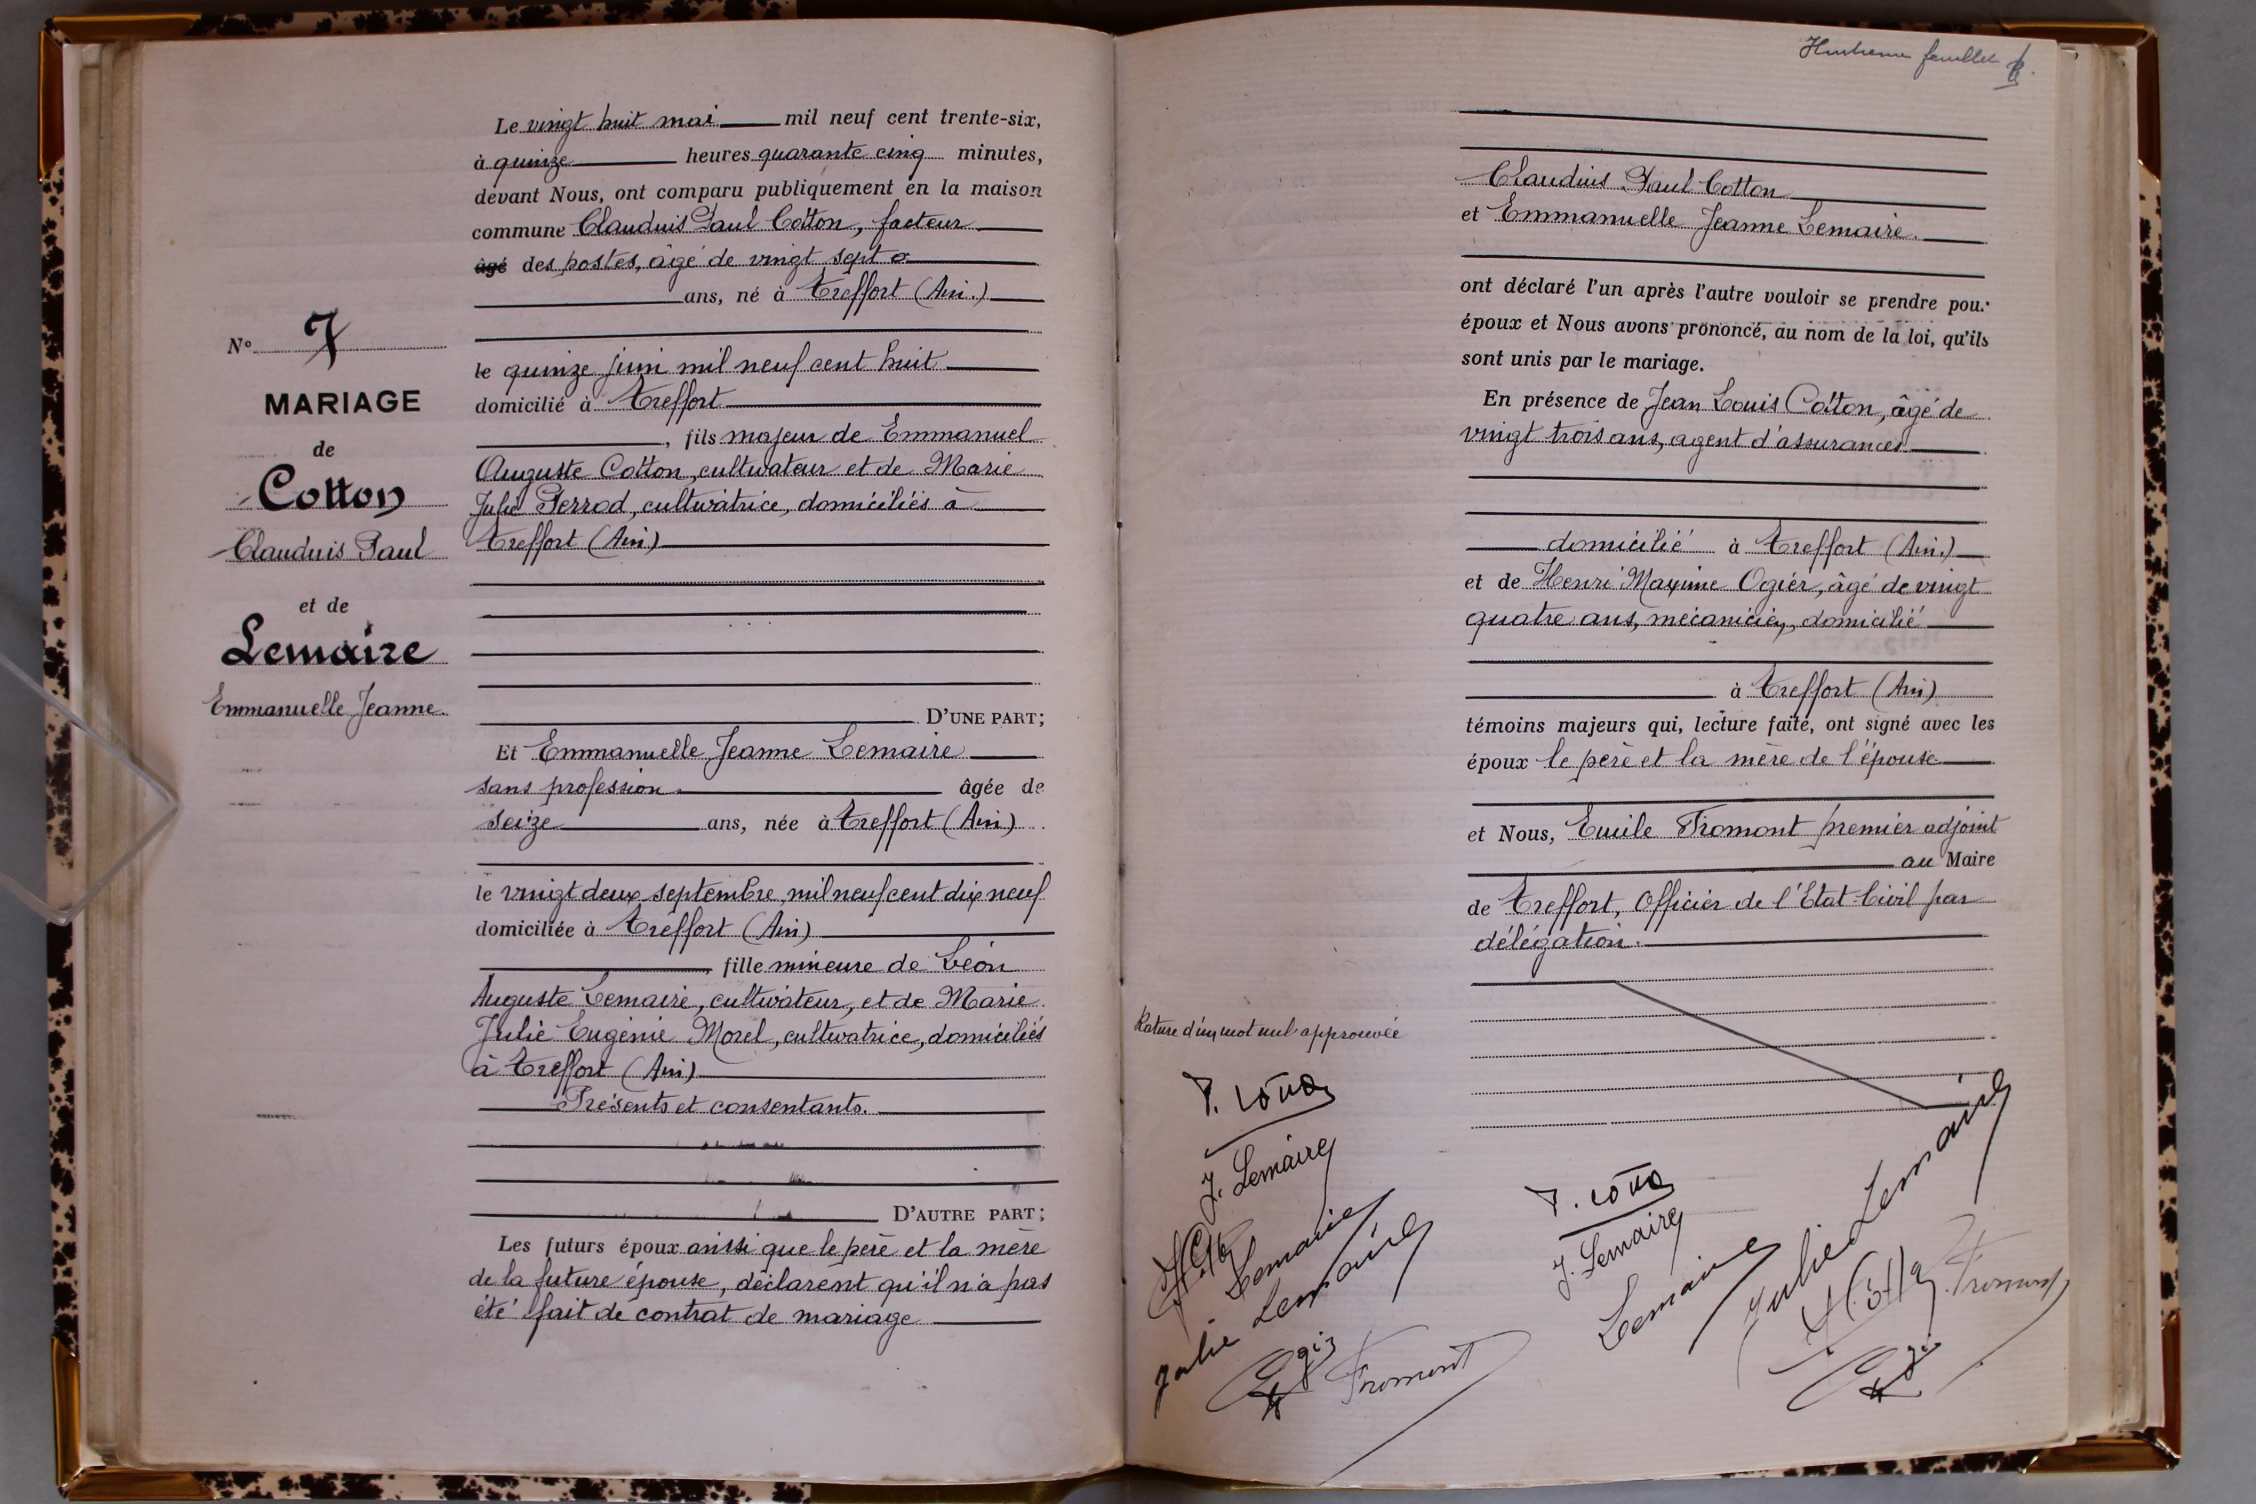 N° 7
MARIAGE
de
Cotton
Claudius Paul
et de
Lemaire
Emmanuelle Jeanne.
Le vingt huit mai mil neuf cent trente-six,
à quinze heures quarante cinq minutes,
devant Nous, ont comparu publiquement en la maison
commune Claudius Paul Cotton, facteur
âgé des postes, âgé de vingt sept
ans, né à Treffort (Ain.)
le quinze juin mil neuf cent huit
domicilié à Treffort
, fils majeur de Emmanuel
Auguste Cotton, cultivateur et de Marie
Julie Perrod, cultivatrice, domiciliés à
Treffort (Ain)
D'UNE PART;
Et Emmanuelle Jeanne Lemaire
sans profession. âgée de
seize ans, née à Treffort (Ain)
le vingt deux septembre, mil neuf cent dix neuf
domiciliée à Treffort (Ain)
, fille mineure de Léon
Auguste Lemaire, cultivateur, et de Marie
Julie Eugénie Morel, cultivatrice, domiciliés
à Treffort (Ain)
Présents et consentants.
D'AUTRE PART;
Les futurs époux ainsi que le père et la mère
de la future épouse, déclarent qu'il n'a pas
été fait de contrat de mariage
Huitième feuillet
Claudius Paul Cotton
et Emmanuelle Jeanne Lemaire.
ont déclaré l'un après l'autre vouloir se prendre pour
époux et Nous avons prononcé, au nom de la loi, qu'ils
sont unis par le mariage.
En présence de Jean Louis Cotton, âgé de
vingt trois ans, agent d'assurances
domicilié à Treffort (Ain.)
et de Henri Maxime Ogier, âgé de vingt
quatre ans, mécanicien, domicilié
à Treffort (Ain)
témoins majeurs qui, lecture faite, ont signé avec les
époux le père et la mère de l'épouse
et Nous, Emile Fromont premier adjoint
au Maire
de Treffort, Officier de l'Etat-Civil par
délégation.
Rature d'un mot nul approuvée
J. Lemaire
Lemaire
Julie Lemaire
Fromont
J. Lemaire
Lemaire
Julie Lemaire
Fromont